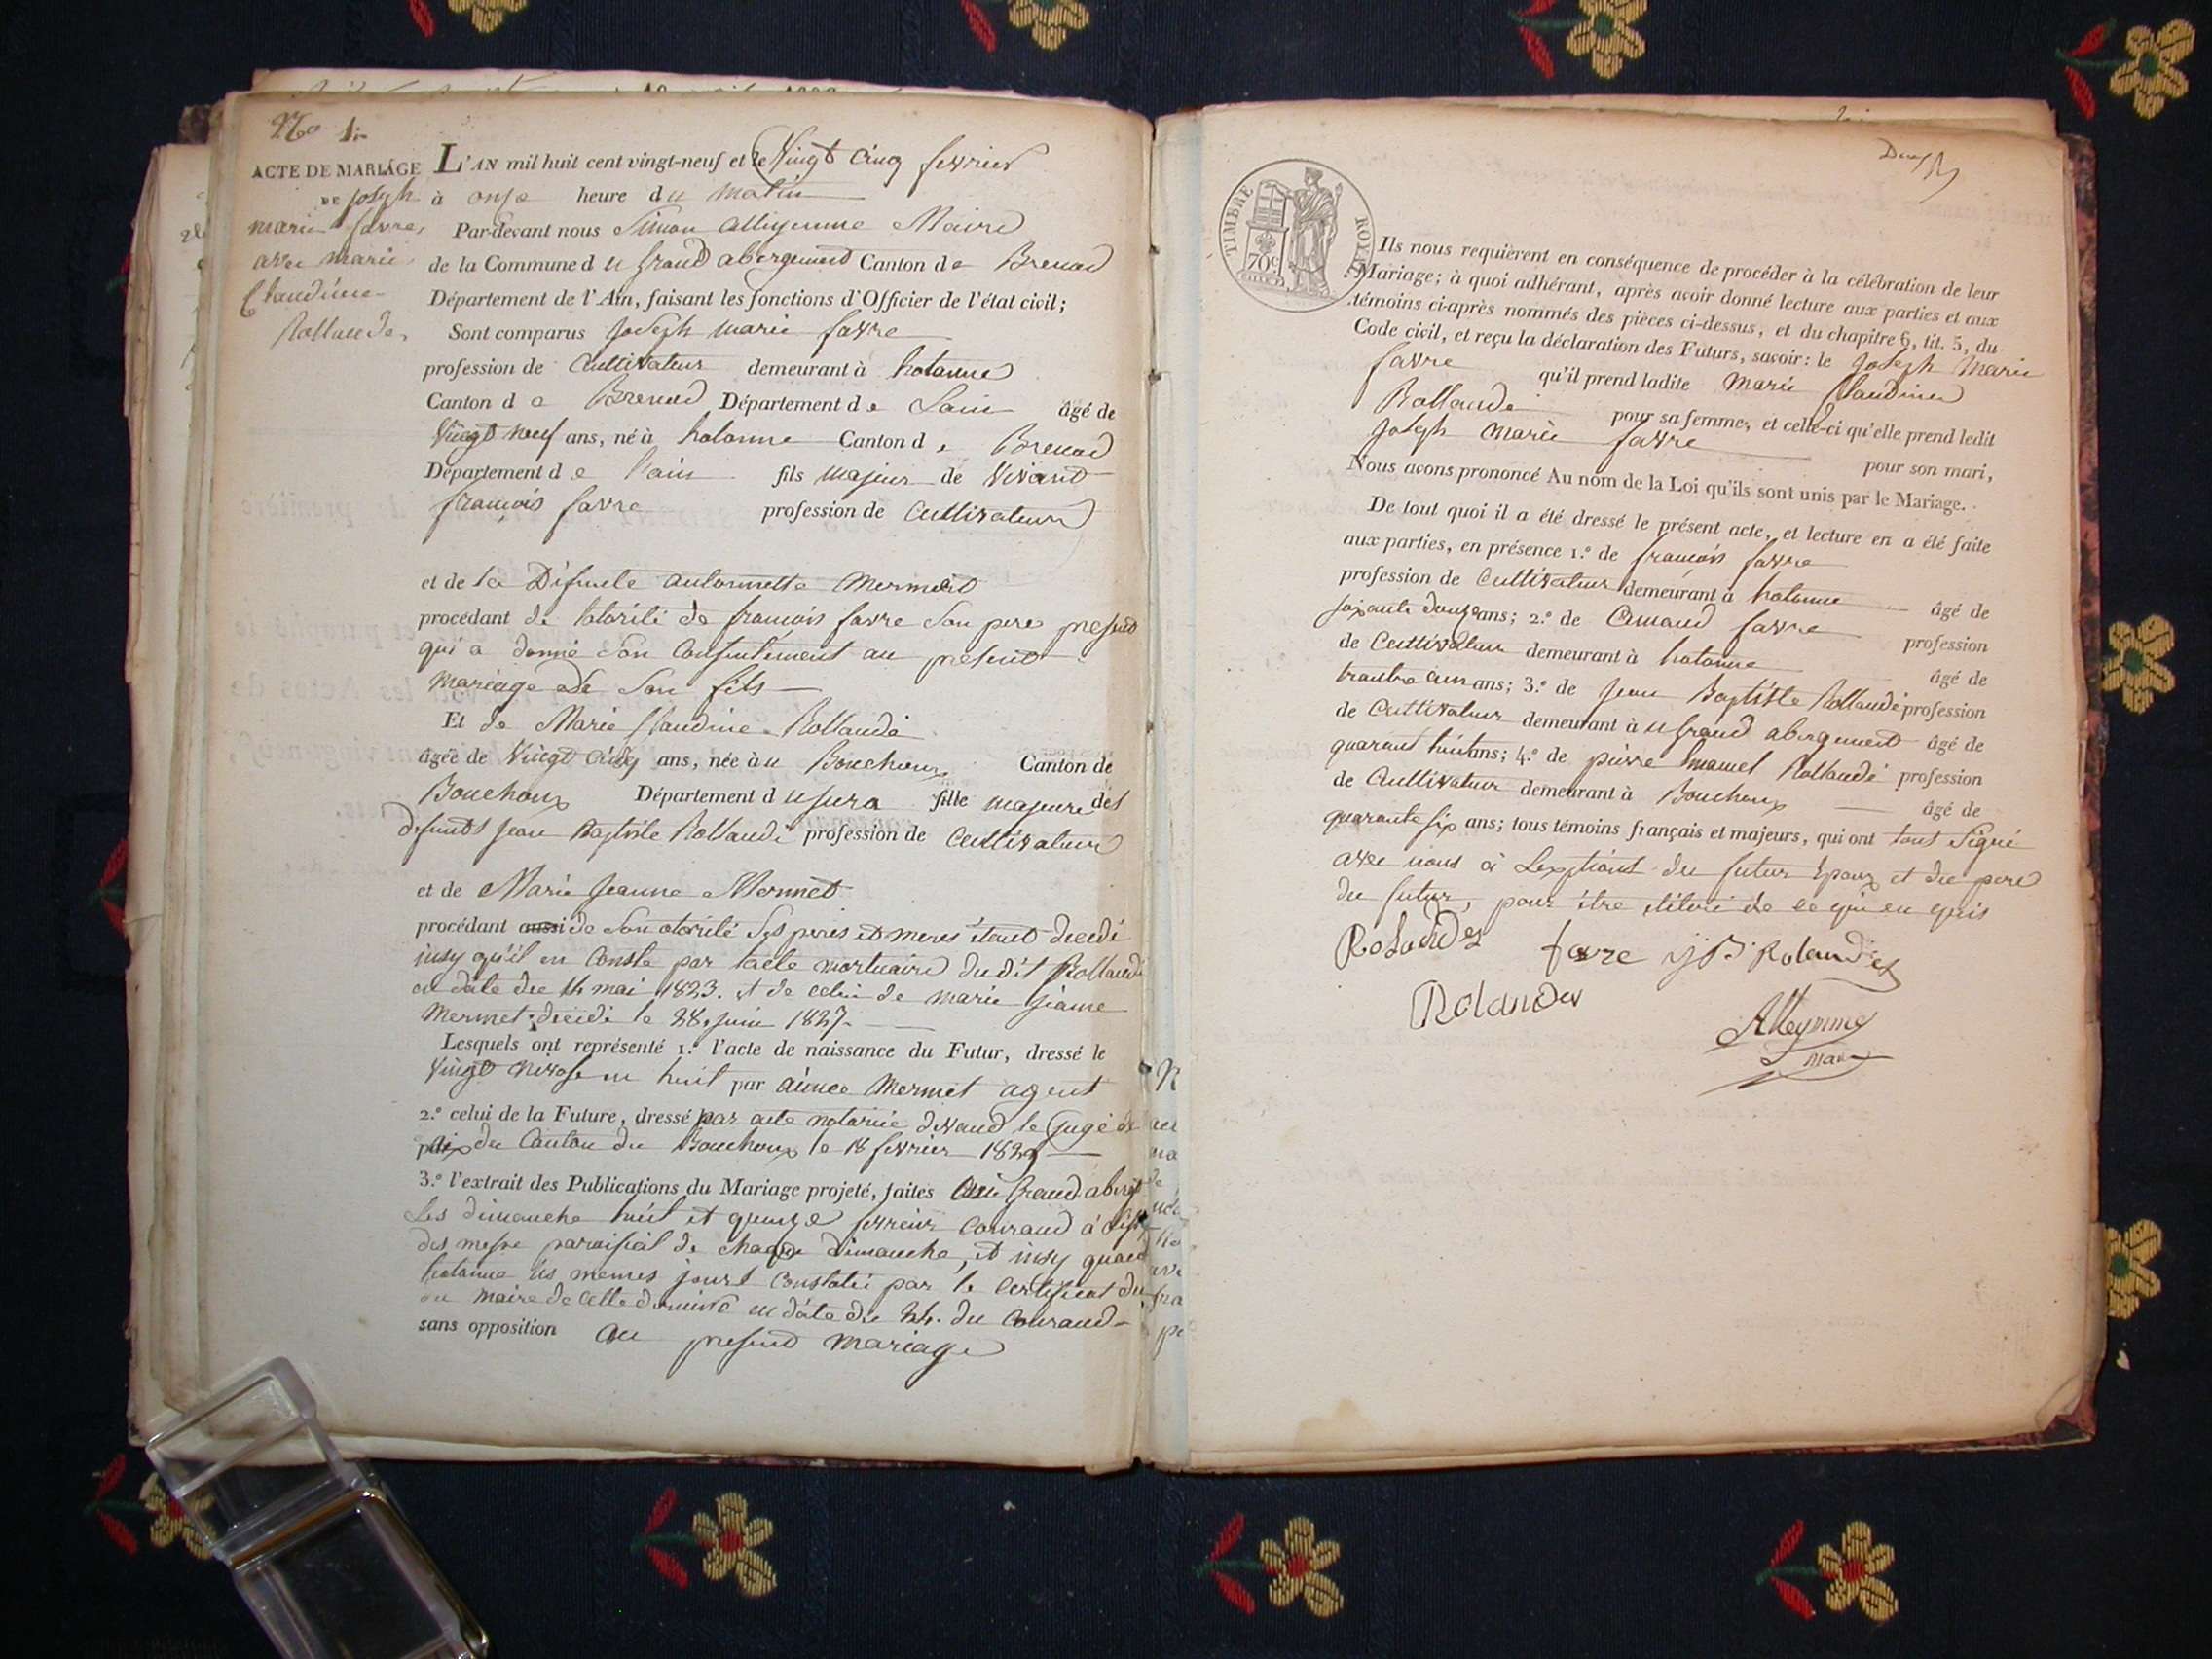 No 1er
ACTE DE MARIAGE
DE Joseph
marie favre
avec marie
Claudine
Rollandé
L'AN mil huit cent vingt-neuf et le Vingt cinq fevrier
à onse heure du matin
Par-devant nous Simon alleyemme Maire
de la Commune du Grand abergement Canton de Brenod
Département de l'Ain, faisant les fonctions d'Officier de l'état civil;
Sont comparus Joseph marie favre
profession de Cultivateur demeurant à hotonne
Canton de Brenod Département de Lain âgé de
Vingt neuf ans, né à hotonne Canton de Brenod
Département de lain fils majeur de Vivant
françois favre profession de Cultivateur
et de la Défunte antoinette Mermet
procédant de lotorité de françois favre Son pere present
qui a donné Son Consentement au present
mariage de Son fils
Et de Marie Claudine Rollandé
âgée de Vingt cinq ans, née au Bouchoux Canton de
Bouchoux Département du Jura fille majeure des
défunts Jean Baptiste Rollandé profession de Cultivateur
et de Marie Jeanne Mermet
procédant aussi de Son otorité Ses peres et meres étant decedé
insy qu'il en Conste par lacte mortuaire dudit Rollandé
en date du 14 mai 1823. et de celui de marie jeanne
Mermet décédé le 28 juin 1827.
Lesquels ont représenté 1.º l'acte de naissance du Futur, dressé le
Vingt nivose an huit par aimée Mermet agent
2.º celui de la Future, dressé par acte notorié devand le Juge de
paix du Canton du Bouchoux le 18 fevrier 1829
3.º l'extrait des Publications du Mariage projeté, faites au Grand abergt
Les dimanche huit et quinze fevreir Courand à
des messe paroissial de chaque Dimanche, et insy qua
hotonne les memes jours Constaté par le Certificat du
maire de cette en date du 24. du Courand
sans opposition au presend mariage
TIMBRE ROYAL
70c
Ils nous requièrent en conséquence de procéder à la célébration de leur
Mariage; à quoi adhérant, après avoir donné lecture aux parties et aux
témoins ci-après nommés des pièces ci-dessus, et du chapitre 6, tit. 5, du
Code civil, et reçu la déclaration des Futurs, savoir: le Joseph Marie
favre qu'il prend ladite Marie Claudine
Rollandé pour sa femme, et celle-ci qu'elle prend ledit
Joseph marie favre pour son mari,
Nous avons prononcé Au nom de la Loi qu'ils sont unis par le Mariage.
De tout quoi il a été dressé le présent acte, et lecture en a été faite
aux parties, en présence 1.º de françois favre
profession de Cultivateur demeurant à hotonne âgé de
soixante douze ans; 2.º de favre profession
de Cultivateur demeurant à hotonne âgé de
ans; 3.º de Jean Baptiste Rollandé profession
de Cultivateur demeurant à u Grand abergement âgé de
quarant huit ans; 4.º de pierre Emanuel Rollandé profession
de Cultivateur demeurant à Bouchoux âgé de
quarante six ans; tous témoins français et majeurs, qui ont tous Signé
avec nous à du futur Epoux et du pere
du futur, pour être de ce
Rolandez favre J B Rolandez
Rolandez
Alleymme
maire